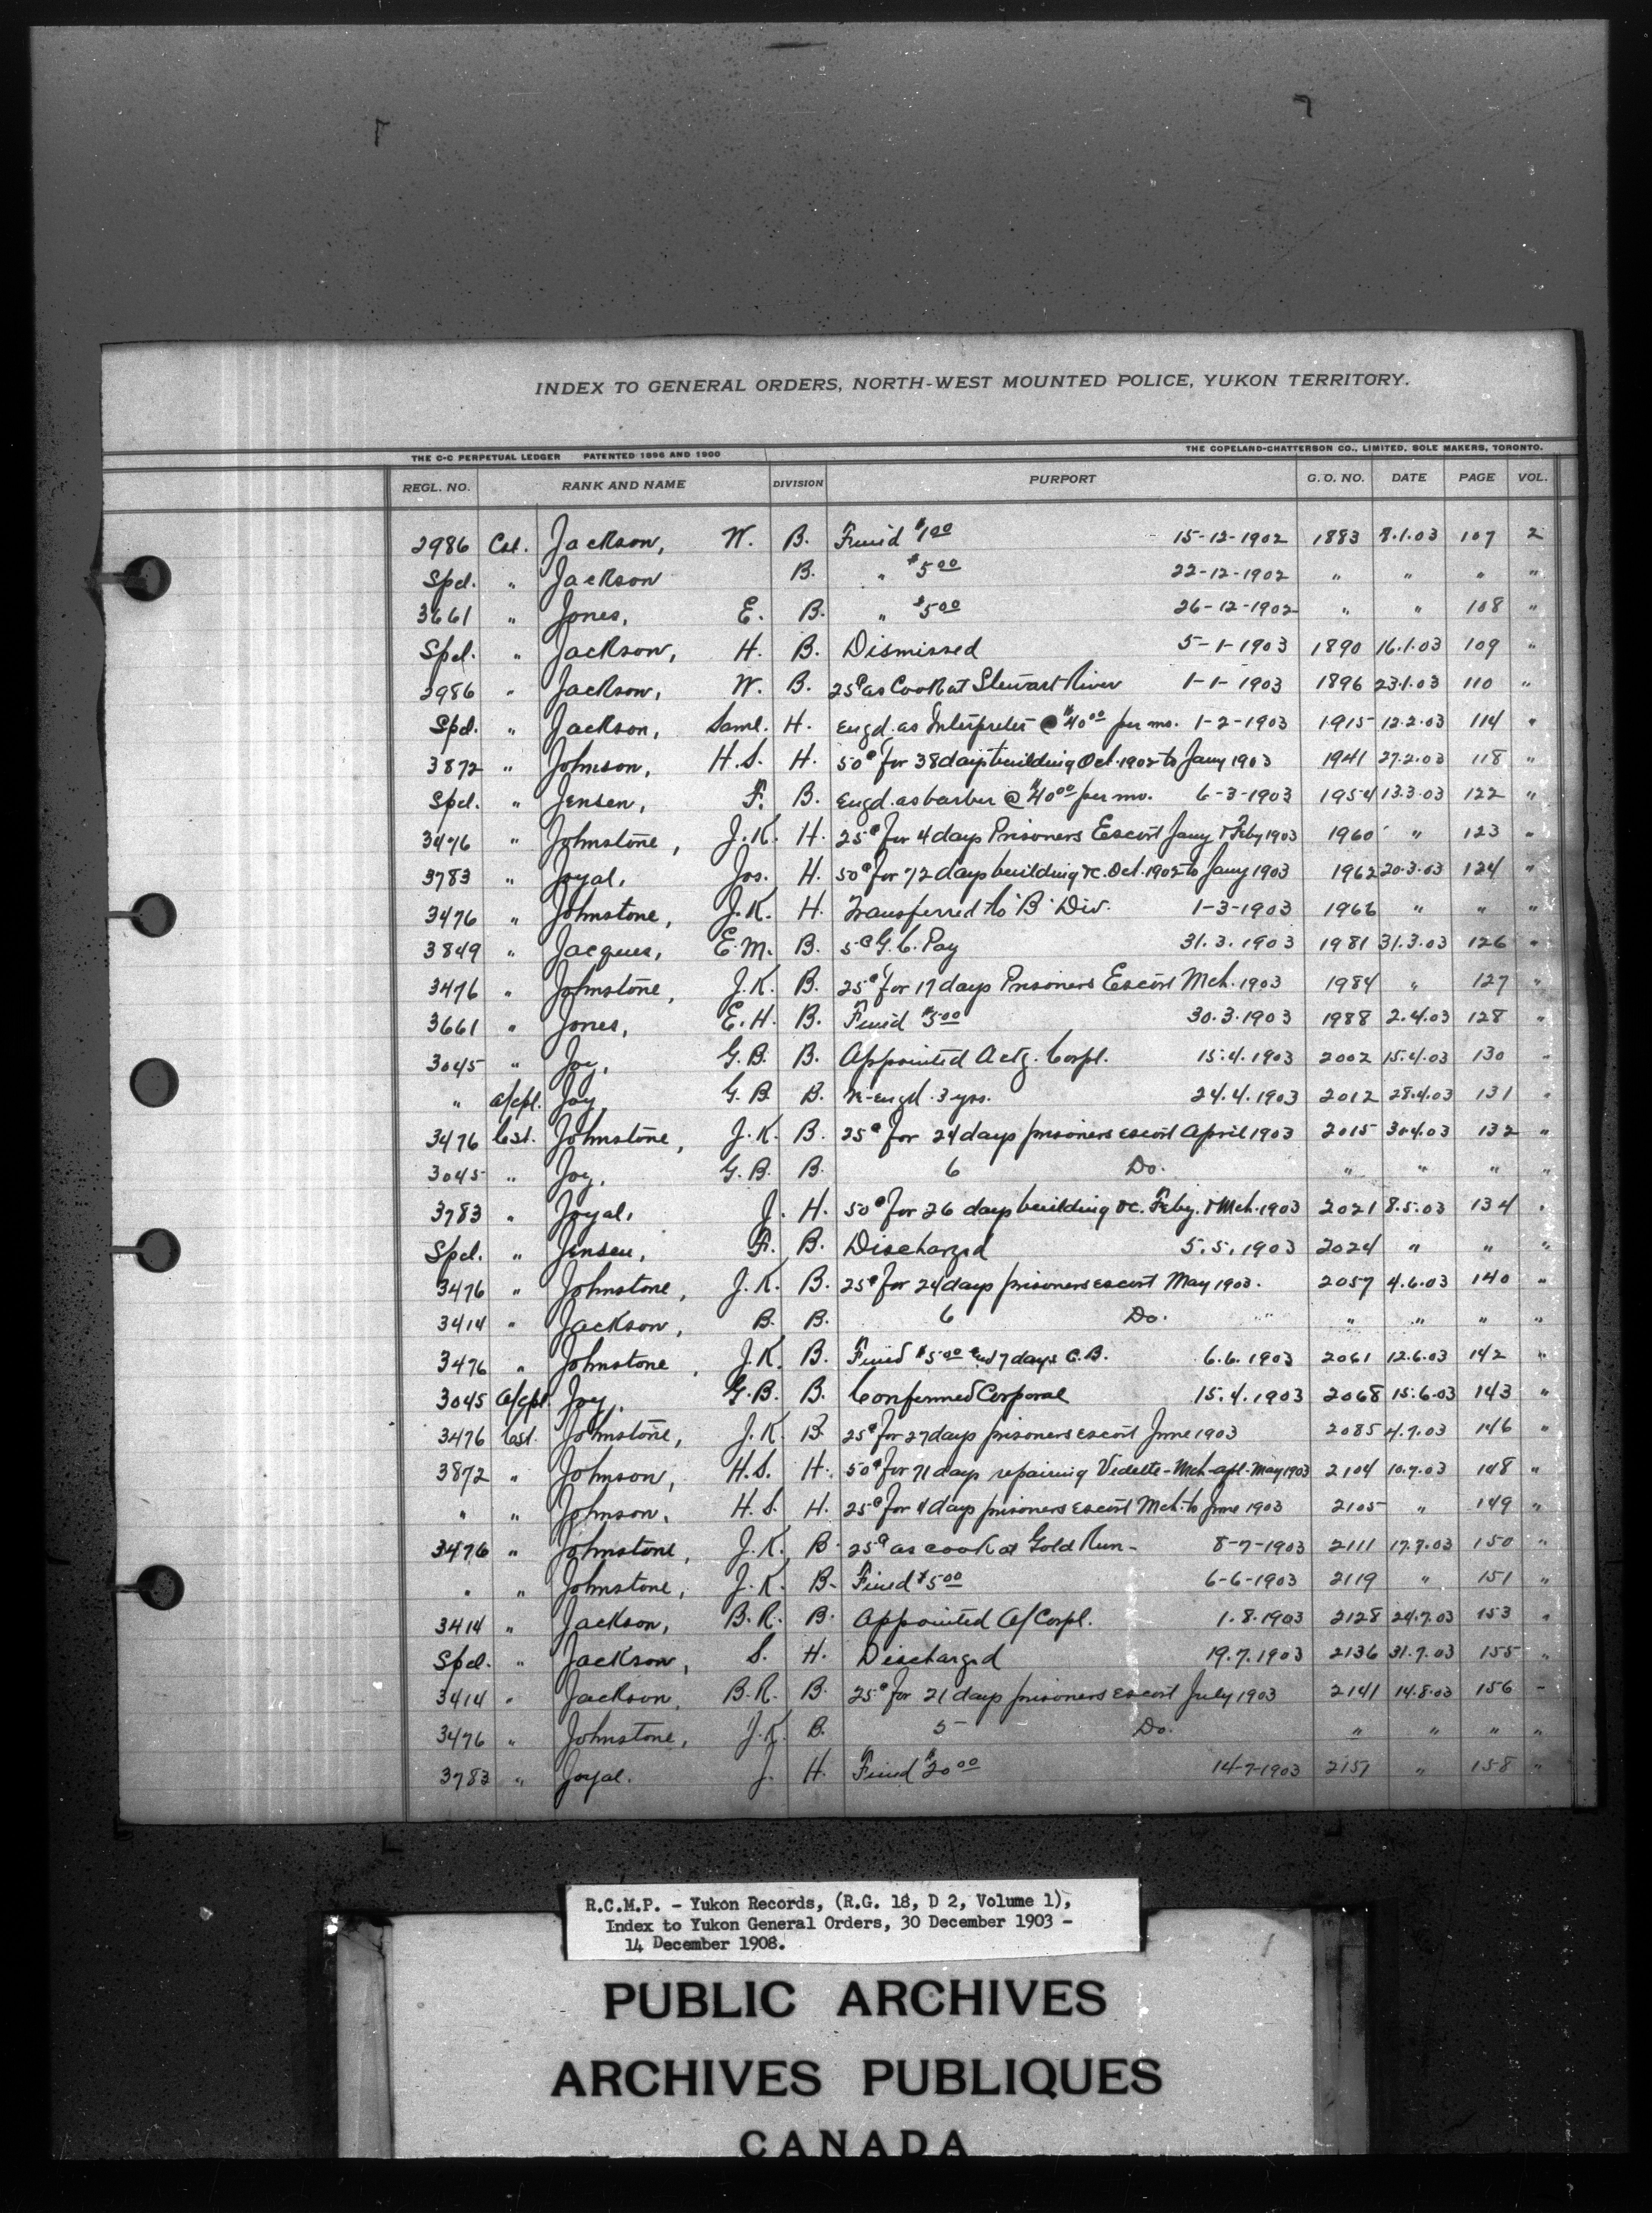 INDEX TO GENERAL ORDERS, NORTH-WEST MOUNTED POLICE, YUKON TERRITORY.
THE C-C PERPETUAL LEDGER PATENTED 1896 AND 1900 THE COPELAND-CHATTERSON CO., LIMITED, SOLE MAKERS, TORONTO.
REGL. NO. RANK AND NAME DIVISION PURPORT G. O. NO. DATE PAGE VOL.
2986 Cst. Jackson, W. B. Fined $1.00 15-12-1902 1883 8.1.03 107 2
Spcl. " Jackson B. " $5.00 22-12-1902 " " " "
3661 " Jones, E. B. " $5.00 26-12-1902 " " 108 "
Spcl. " Jackson, H. B. Dismissed 5-1-1903 1890 16.1.03 109 "
2986 " Jackson, W. B. 25¢ as Cook at Stewart River 1-1-1903 1896 23.1.03 110 "
Spcl. " Jackson, Saml. H. Engd. as Interpreter @ $40.00 per mo. 1-2-1903 1915 12.2.03 114 "
3872 " Johnson, H.S. H. 50¢ for 38 days building Oct. 1902 to Jany 1903 1941 27.2.03 118 "
Spcl. " Jensen, F. B. Engd. as barber @ $40.00 per mo. 6-3-1903 1954 13.3.03 122 "
3476 " Johnstone, J.K. H. 25¢ for 4 days Prisoners Escort Jany & Feby 1903 1960 " 123 "
3783 " Joyal, Jos. H. 50¢ for 72 days building &c. Oct. 1902 to Jany 1903 1962 20.3.03 124 "
3476 " Johnstone, J.K. H. Transferred to "B" Div. 1-3-1903 1966 " " "
3849 " Jacques, E.M. B. 5¢ G.C. Pay 31.3.1903 1981 31.3.03 126 "
3476 " Johnstone, J.K. B. 25¢ for 17 days Prisoners Escort Mch. 1903 1984 " 127 "
3661 " Jones, E.H. B. Fined $5.00 30.3.1903 1988 2.4.03 128 "
3045 " Joy, G.B. B. Appointed Actg. Corpl. 15.4.1903 2002 15.4.03 130 "
" a/cpl. Joy, G.B. B. Re-engd. 3 yrs. 24.4.1903 2012 28.4.03 131 "
3476 Cst. Johnstone, J.K. B. 25¢ for 24 days prisoners escort April 1903 2015 30.4.03 132 "
3045 " Joy, G.B. B. 6 Do. " " " "
3783 " Joyal, J. H. 50¢ for 26 days building &c. Feby. & Mch. 1903 2021 8.5.03 134 "
Spcl. " Jensen, F. B. Discharged 5.5.1903 2024 " " "
3476 " Johnstone, J.K. B. 25¢ for 24 days prisoners escort May 1903. 2057 4.6.03 140 "
3414 " Jackson, B. B. 6 Do. " " " "
3476 " Johnstone, J.K. B. Fined $5.00 and 7 days C.B. 6.6.1903 2061 12.6.03 142 "
3045 a/cpl. Joy, G.B. B. Confirmed Corporal 15.4.1903 2068 15.6.03 143 "
3476 Cst. Johnstone, J.K. B. 25¢ for 27 days prisoners escort June 1903 2085 4.7.03 146 "
3872 " Johnson, H.S. H. 50¢ for 71 days repairing Vidette - Mch-apl-May 1903 2104 10.7.03 148 "
" " Johnson, H.S. H. 25¢ for 4 days prisoners escort Mch. to June 1903 2105 " 149 "
3476 " Johnstone, J.K. B. 25¢ as cook at Gold Run- 8-7-1903 2111 17.7.03 150 "
" " Johnstone, J.K. B. Fined $5.00 6-6-1903 2119 " 151 "
3414 " Jackson, B.R. B. Appointed A/Corpl. 1.8.1903 2128 24.7.03 153 "
Spcl. " Jackson, S. H. Discharged 19.7.1903 2136 31.7.03 155 "
3414 " Jackson, B.R. B. 25¢ for 21 days prisoners escort July 1903 2141 14.8.03 156 "
3476 " Johnstone, J.K. B. 5 Do. " " " "
3783 " Joyal. J. H. Fined $20.00 14-7-1903 2157 " 158 "
R.C.M.P. - Yukon Records, (R.G. 18, D 2, Volume 1),
Index to Yukon General Orders, 30 December 1903 -
14 December 1908.
PUBLIC ARCHIVES
ARCHIVES PUBLIQUES
CANADA